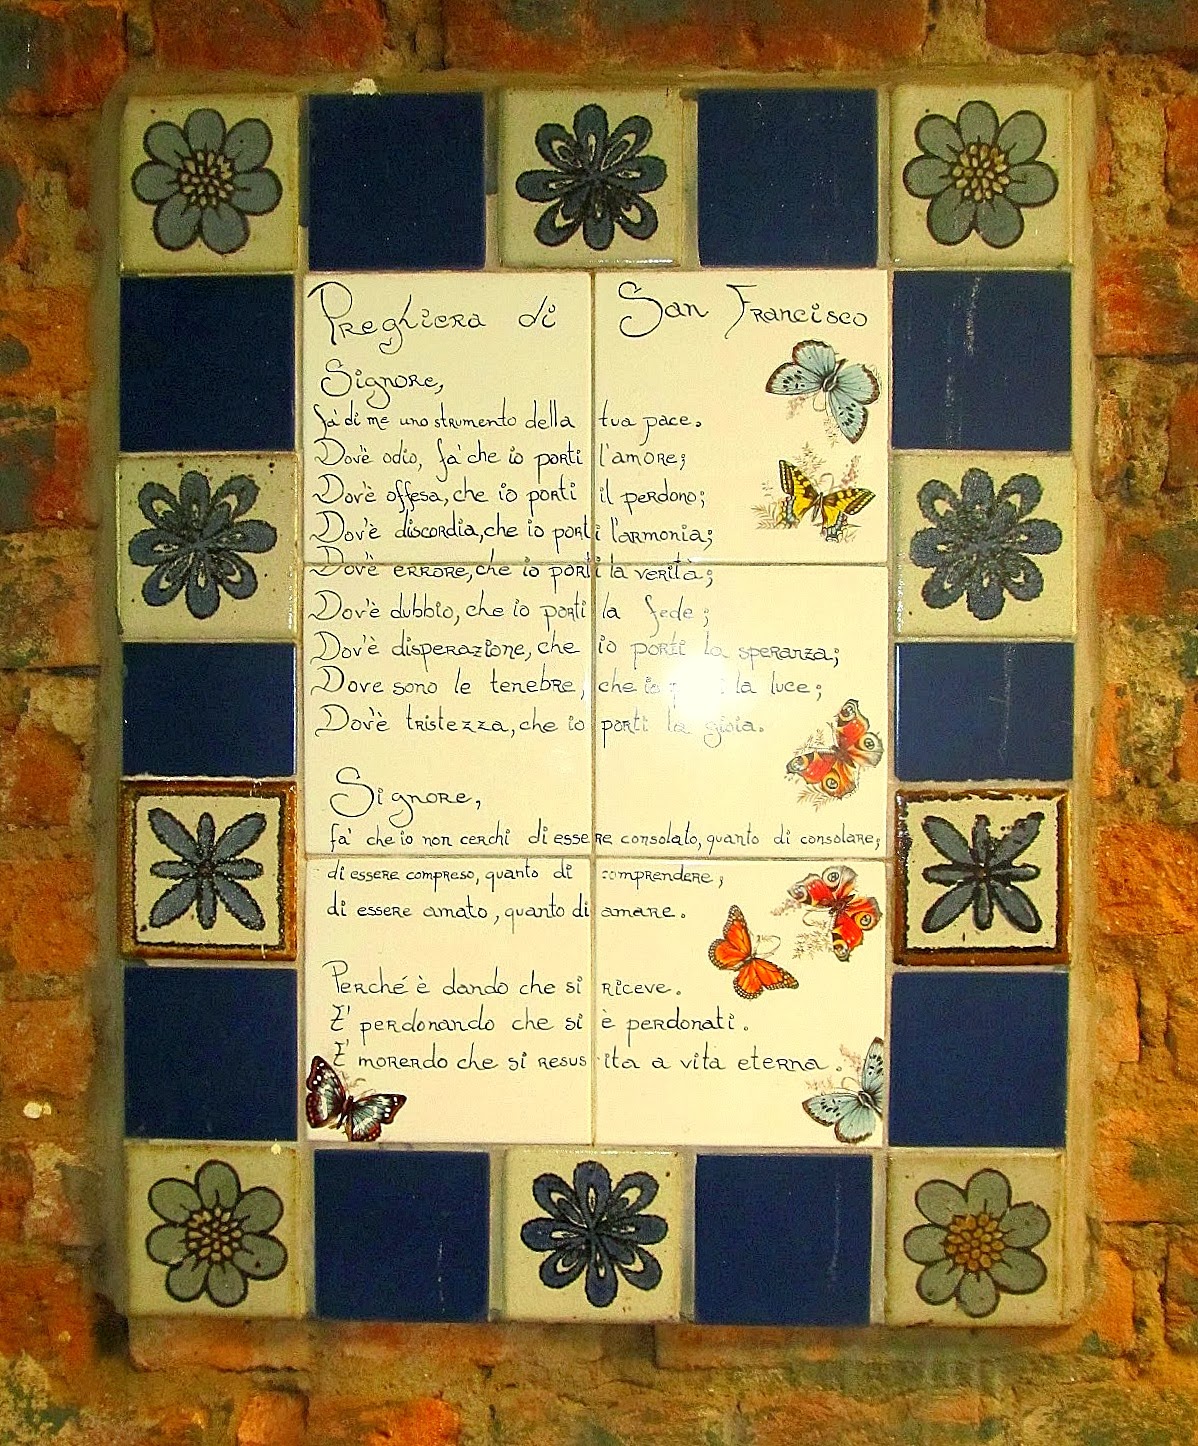 Preghiera di San Francisco
Signore,
fa' di me uno strumento della tua pace.
Dov'è odio, fa' che io porti l'amore;
Dov'è offesa, che io porti il perdono;
Dov'è discordia, che io porti l'armonia;
Dov'è errore, che io porti la verità;
Dov'è dubbio, che io porti la fede;
Dov'è disperazione, che io porti la speranza;
Dove sono le tenebre, che io la luce;
Dov'è tristezza, che io porti la gioia.
Signore,
fa' che io non cerchi di essere consolato, quanto di consolare;
di essere compreso, quanto di comprendere;
di essere amato, quanto di amare.
Perché è dando che si riceve.
E' perdonando che si è perdonati.
E' morendo che si resusita a vita eterna.